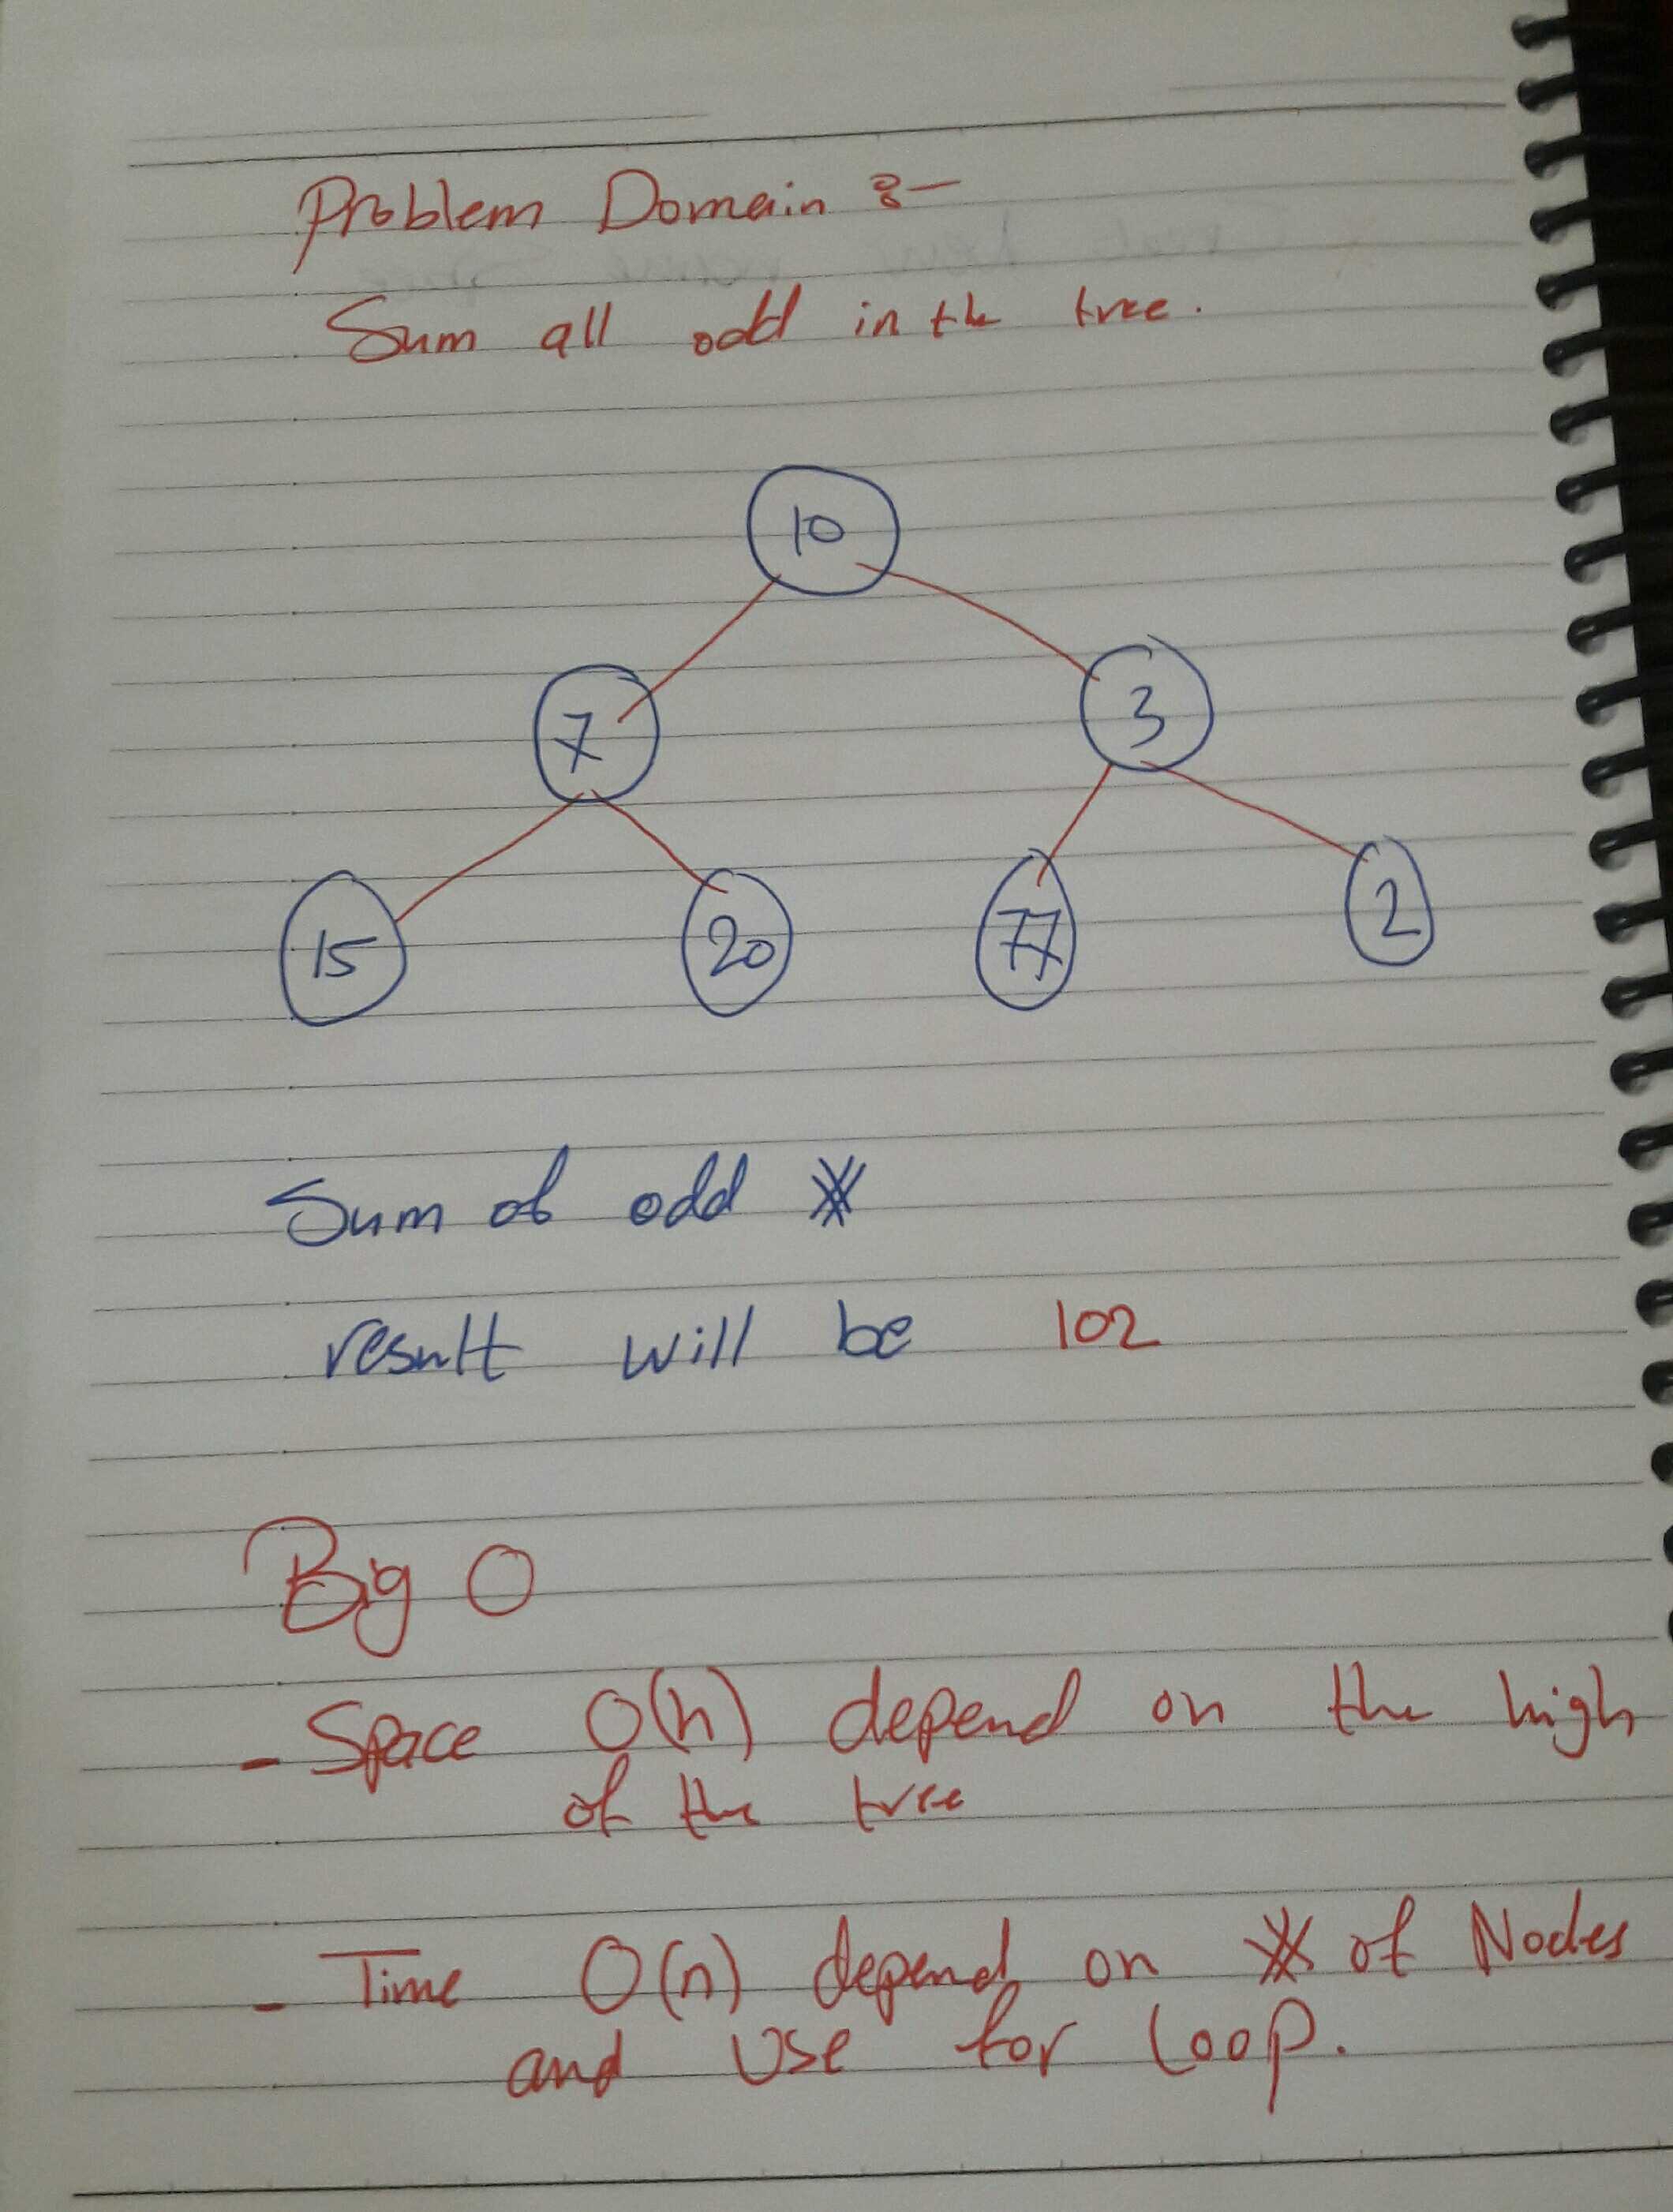 Problem Domain :-
Sum all odd in the tree.
10
7 3
15 20 77 2
Sum of odd #
result will be 102
Big O
- Space O(h) depend on the high
of the tree
- Time O(n) depend on # of Nodes
and Use for Loop.